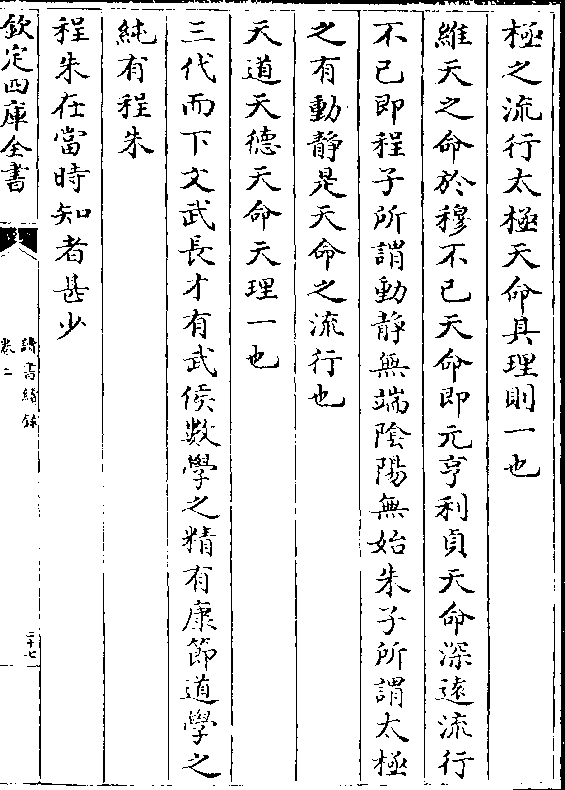 極之流行太極天命具理則一也
維天之命於穆不已天命即元亨利貞天命深遠流行
不已即程子所謂動靜無端隂陽無始朱子所謂太極
之有動靜是天命之流行也
天道天德天命天理一也
三代而下文武長才有武侯數學之精有康節道學之
純有程朱
程朱在當時知者甚少
欽定四庫全書
讀書續録
卷二
二十七